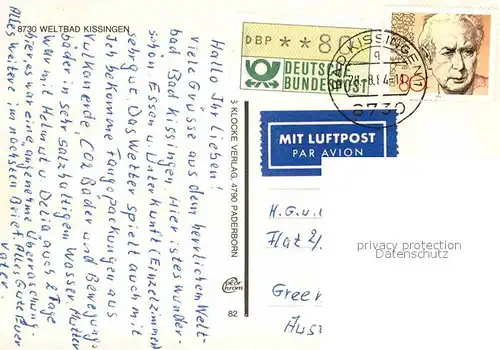 8730 WELTBAD KISSINGEN
Hallo Ihr Lieben!
Viele Grüsse aus dem herrlichen Welt-
bad Bad Kissingen. Hier ist es wunder-
schön Essen u. Unterkunft (Einzelzimmer)
sehr gut. Das Wetter spielt auch mit
Ich bekomme Fangopackungen aus
Vulkanerde, CO2 Bäder und Bewegungs-
bäder in sehr salzhaltigem Wasser. Mutter
war mit Helmut u. Delia auch 2 Tage
hier es war eine angenehme Überraschung.
Alles weitere im nächsten Brief. Alles Gute Euer
Vater.
KLOCKE VERLAG, 4790 PADERBORN
82
DBP **80
DEUTSCHE
BUNDESPOST
BAD KISSINGEN 1
8730
80
MIT LUFTPOST
PAR AVION
H. G. u.
Flat 2/
Green
Aus
privacy protection
Datenschutz